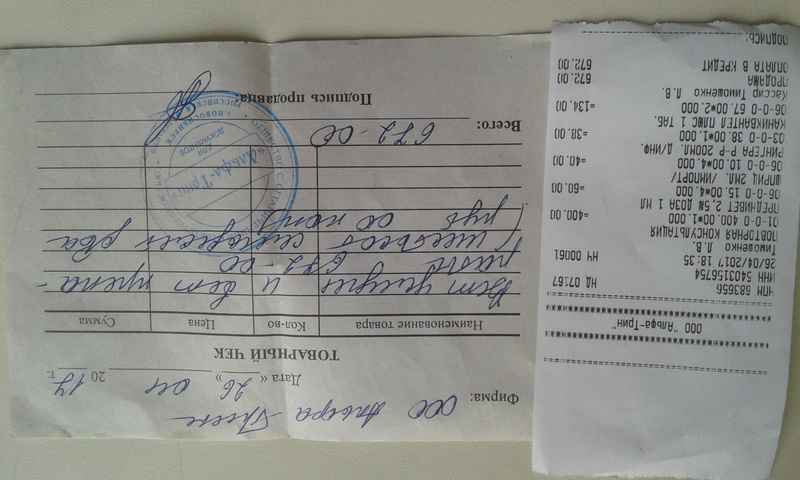 Фирма: ООО Альфа-Трин
Дата « 26 » 04 2017 г.
ТОВАРНЫЙ ЧЕК
Наименование товара Кол-во Цена Сумма
Вет услуги и вет препа-
раты 672-00
(шестьсот семьдесят два
руб 00 коп)
Всего: 672-00
Подпись продавца:
«Альфа-Трин»
ДЛЯ ДОКУМЕНТОВ
г. НОВОСИБИРСК
ООО "Альфа-Трин"
ЧПМ 693656 НД 07167
ИНН 5403156754
26/04/2017 18:35 НЧ 00061
Тимошенко Л.В.
ПОВТОРНАЯ КОНСУЛЬТАЦИЯ
01-0-0 400.00*1.000 =400.00
ПРЕДНИВЕТ 2,5% ДОЗА 1 МЛ
06-0-0 15.00*4.000 =60.00
ШПРИЦ 2МЛ. /ИМПОРТ/
06-0-0 10.00*4.000 =40.00
РИНГЕРА Р-Р 200МЛ. Д/ИНФ.
03-0-0 38.00*1.000 =38.00
КАНИКВАНТЕЛ ПЛЮС 1 ТАБ.
06-0-0 67.00*2.000 =134.00
Кассир Тимошенко Л.В.
ПРОДАЖА 672.00
ОПЛАТА В КРЕДИТ 672.00
ПОДПИСЬ: